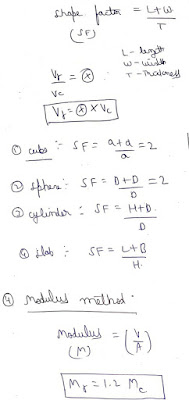 Shape factor = L+W/T
(SF)
L - length
W - width
T - Thickness
Vr/Vc = (x)
Vr = (x) x Vc
① cube :- SF = a+a/a = 2
② sphere: SF = D+D/D = 2
③ cylinder :- SF = H+D/D
④ slab :- SF = L+B/H
④ Modulus method :-
Modulus = (V/A)
(M)
Mr = 1.2 Mc